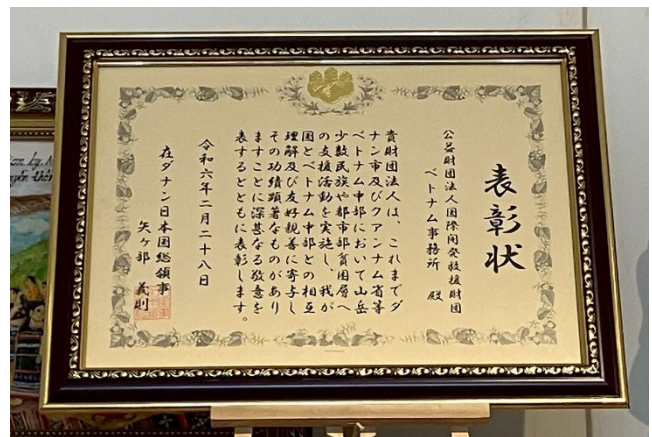 表彰状
公益財団法人国際開発救援財団
ベトナム事務所 殿
貴財団法人は、これまでダ
ナン市及びクアンナム省等
ベトナム中部において山岳
少数民族や都市部貧困層へ
の支援活動を実施し、我が
国とベトナム中部との相互
理解及び友好親善に寄与し
その功績顕著なものがあり
ますことに深甚なる敬意を
表するとともに表彰します。
令和六年二月二十八日
在ダナン日本国総領事
矢ヶ部 義則